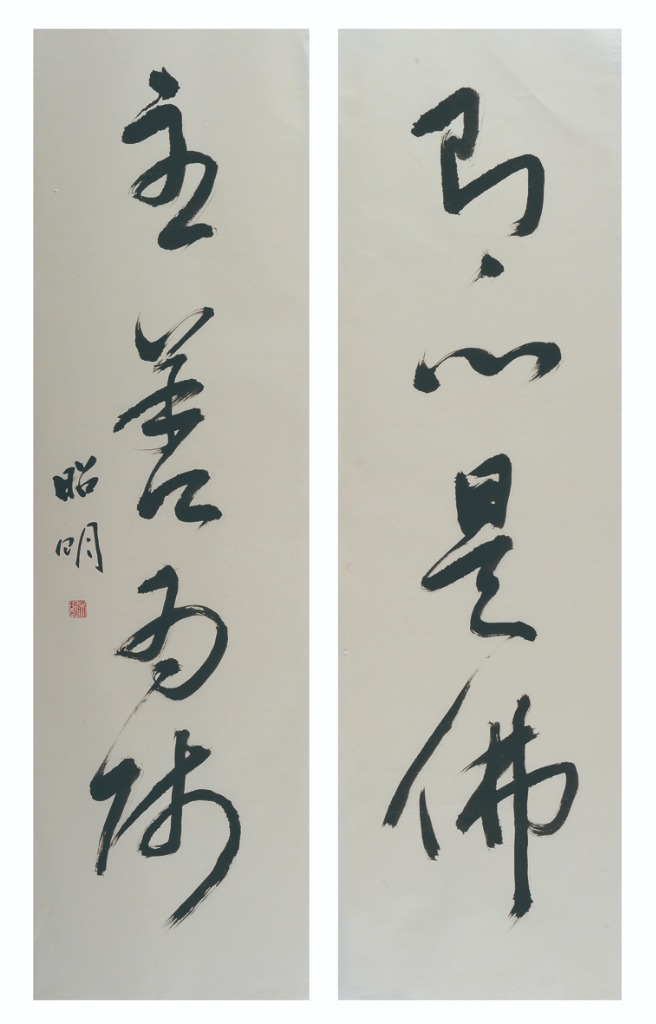 即心是佛
主善為師
昭明